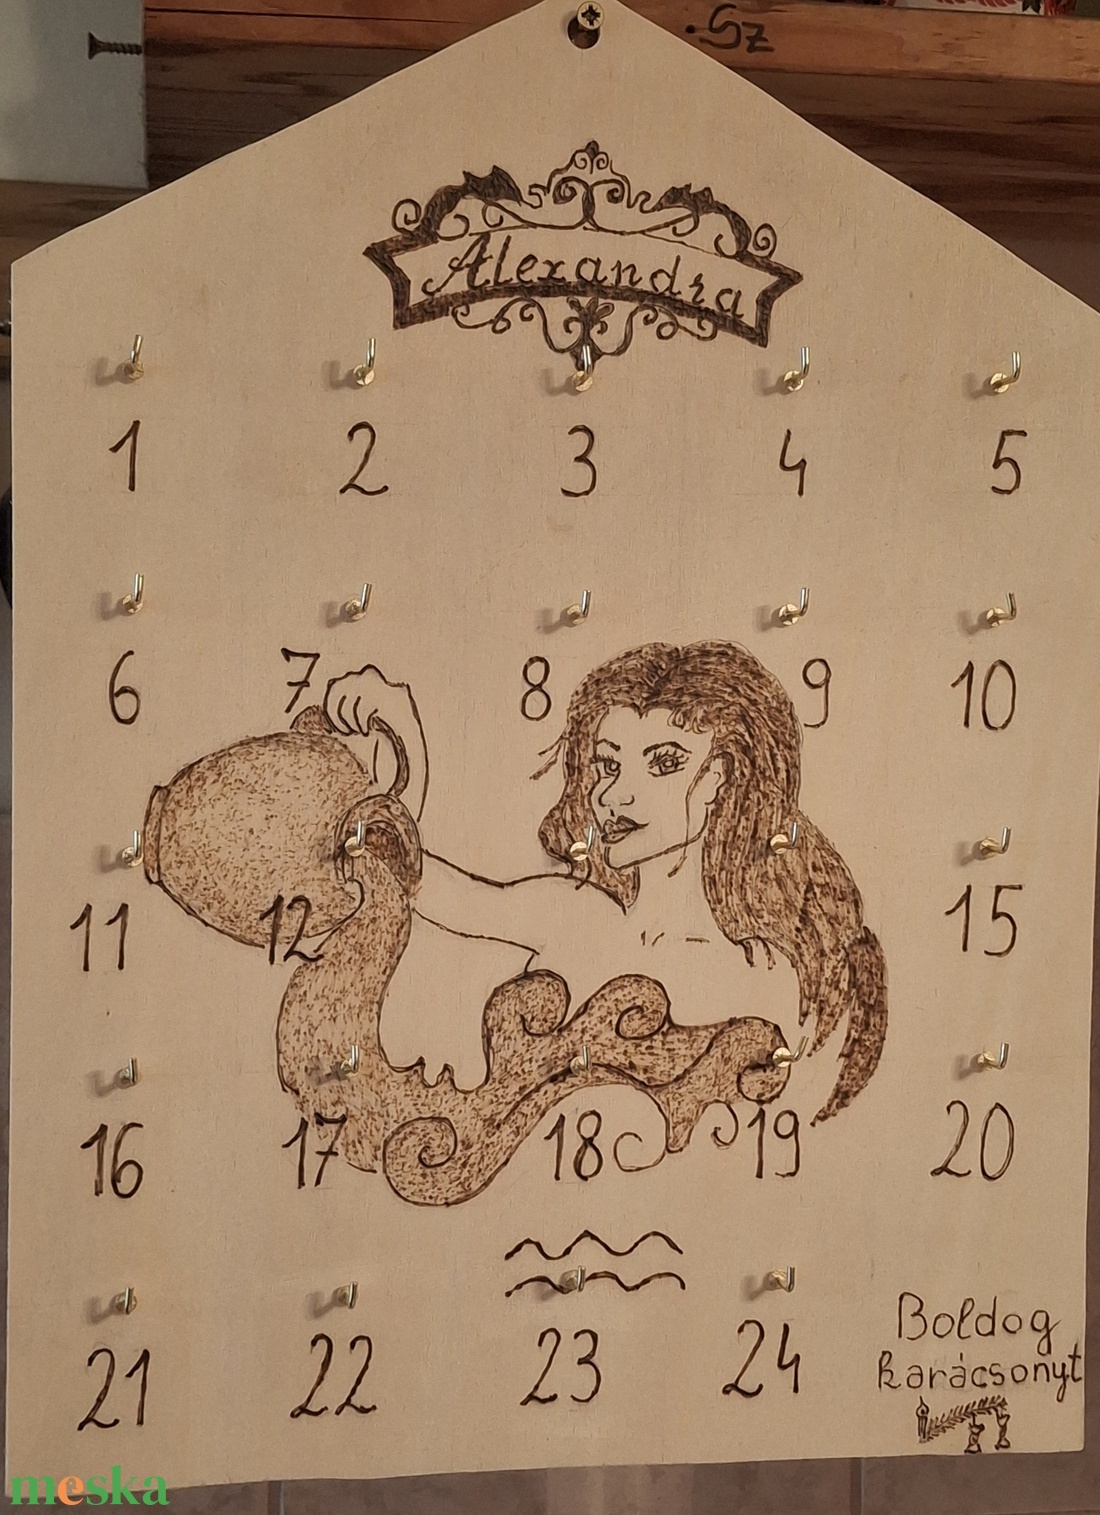 .Sz
Alexandra
1 2 3 4 5
6 7 8 9 10
11 12 15
16 17 18 19 20
21 22 23 24
Boldog
karácsonyt
meska